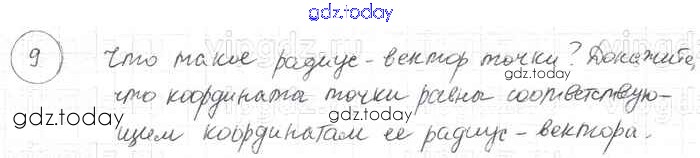 gdz.today
9 Что такое радиус-вектор точки? Докажите,
gdz.today
что координата точки равны соответствую-
gdz.today
щим координатам ее радиус-вектора.
gdz.today